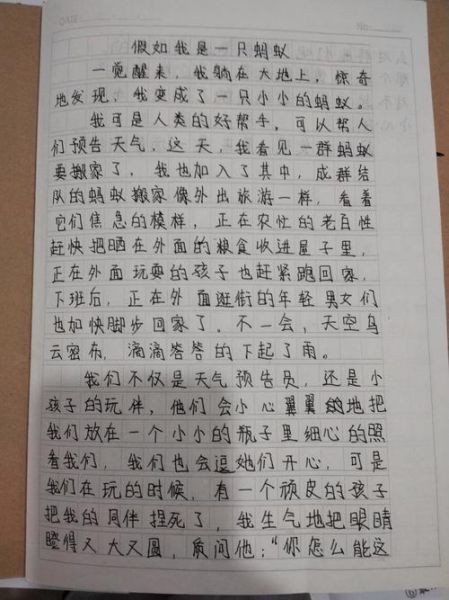 假如我是一只蚂蚁
一觉醒来，我躺在大地上，惊奇
地发现，我变成了一只小小的蚂蚁。
我可是人类的好帮手，可以帮人
们预告天气，这天，我看见一群蚂蚁
要搬家了，我也加入了其中，成群结
队的蚂蚁搬家像外出旅游一样，看着
它们焦急的模样，正在农忙的老百性
赶快把晒在外面的粮食收进屋子里，
正在外面玩耍的孩子也赶紧跑回家，
下班后，正在外面逛街的年轻男女们
也加快脚步回家了。不一会，天空乌
云密布，滴滴答答的下起了雨。
我们不仅是天气预告员，还是小
孩子的玩伴，他们会小心翼翼的地把
我们放在一个小小的瓶子里细心的照
看我们，我们也会逗她们开心，可是
我们在玩的时候，有一个顽皮的孩子
把我的同伴捏死了，我生气地把眼睛
瞪得又大又圆，质问他：“你怎么能这